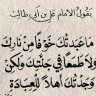 يقول الإمام علي بن أبي طالب
ما عبدتك خوفا من نارك
ولا طمعا في جنتك ولكن
وجدتك أهلا للعبادة